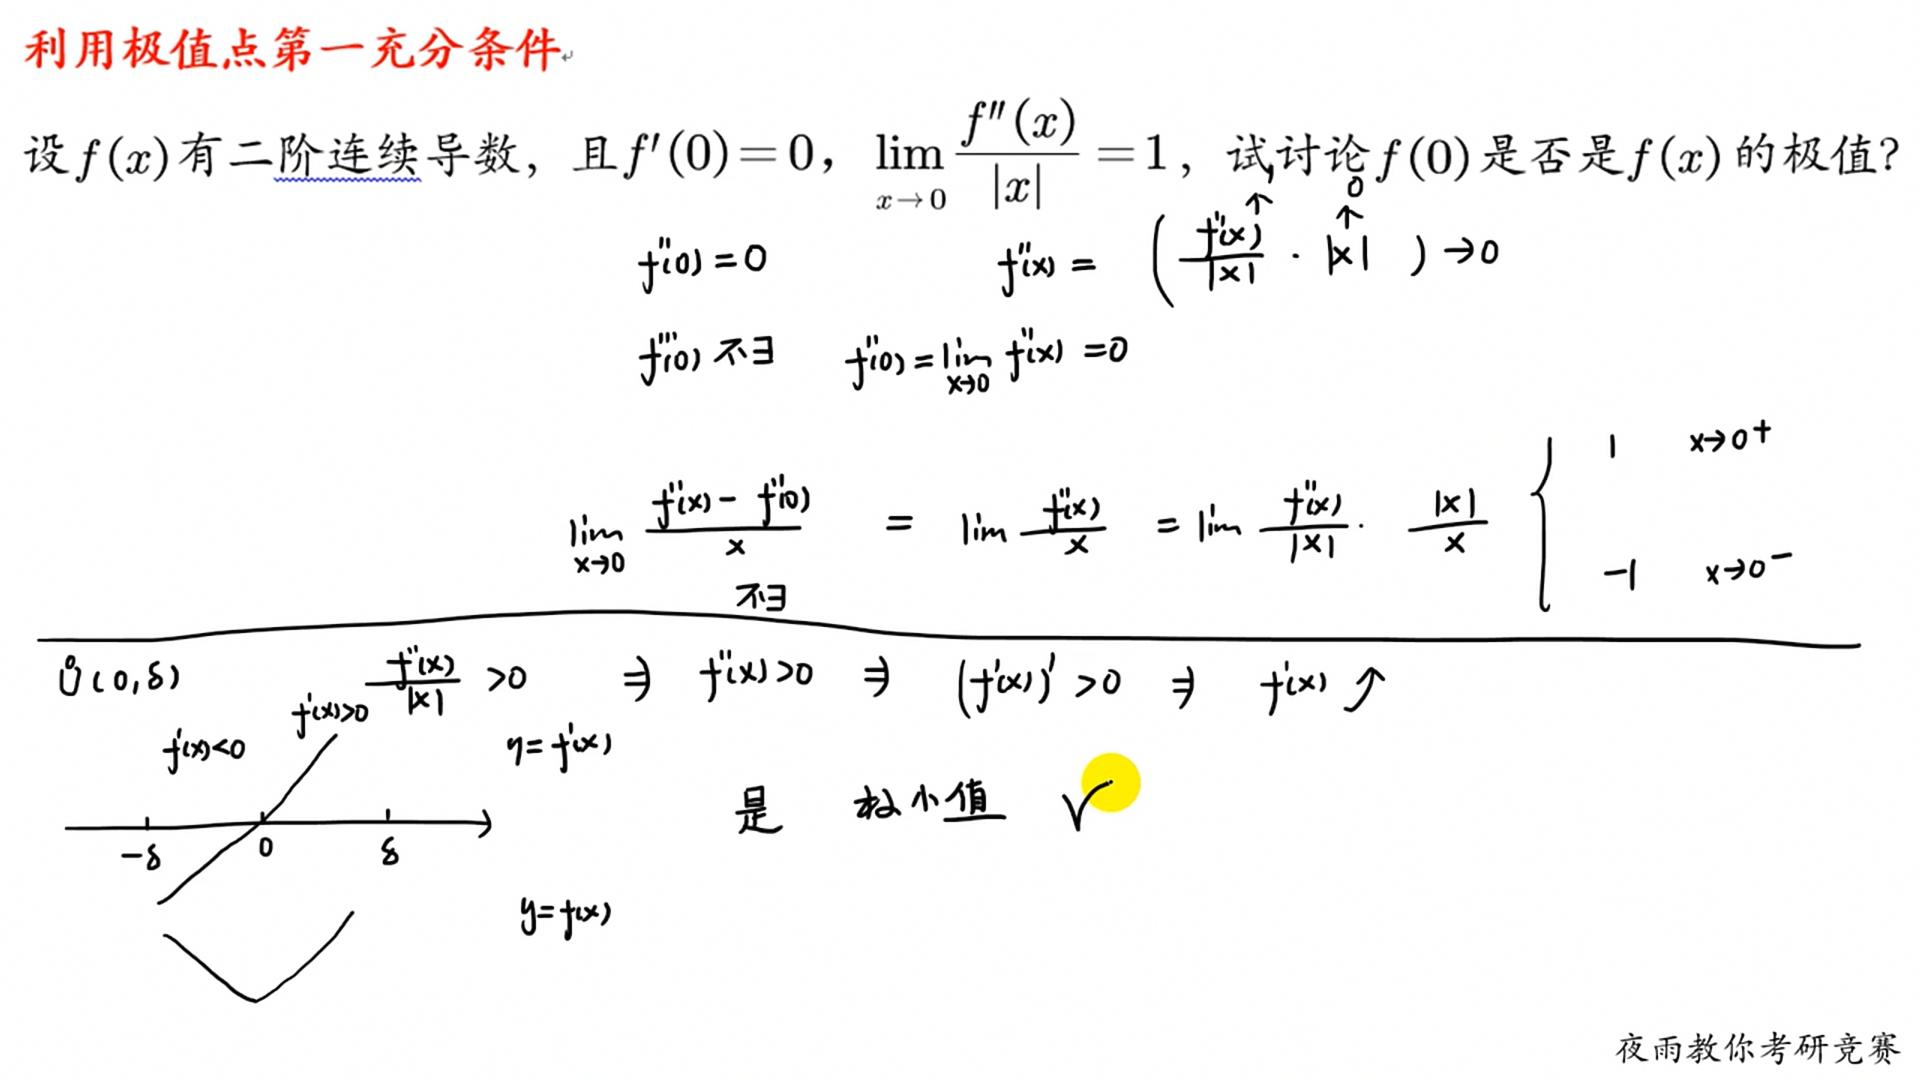 利用极值点第一充分条件
设f(x)有二阶连续导数，且f′(0)=0，lim x→0 f″(x)/|x| =1，试讨论f(0)是否是f(x)的极值?
f″(0)=0 f″(x)= ( f″(x)/|x| · |x| ) →0
↑1 ↑0
f‴(0) 不∃ f″(0)=lim x→0 f″(x) =0
lim x→0 (f″(x)- f″(0))/x = lim f″(x)/x = lim f″(x)/|x| · |x|/x { 1 x→0+
-1 x→0-
不∃
Ů(0,δ) f″(x)/|x| >0 ⇒ f″(x)>0 ⇒ (f′(x))′ >0 ⇒ f′(x) ↗
f′(x)<0 f′(x)>0 y= f′(x)
是 极小值 √
-δ 0 δ
y=f(x)
夜雨教你考研竞赛